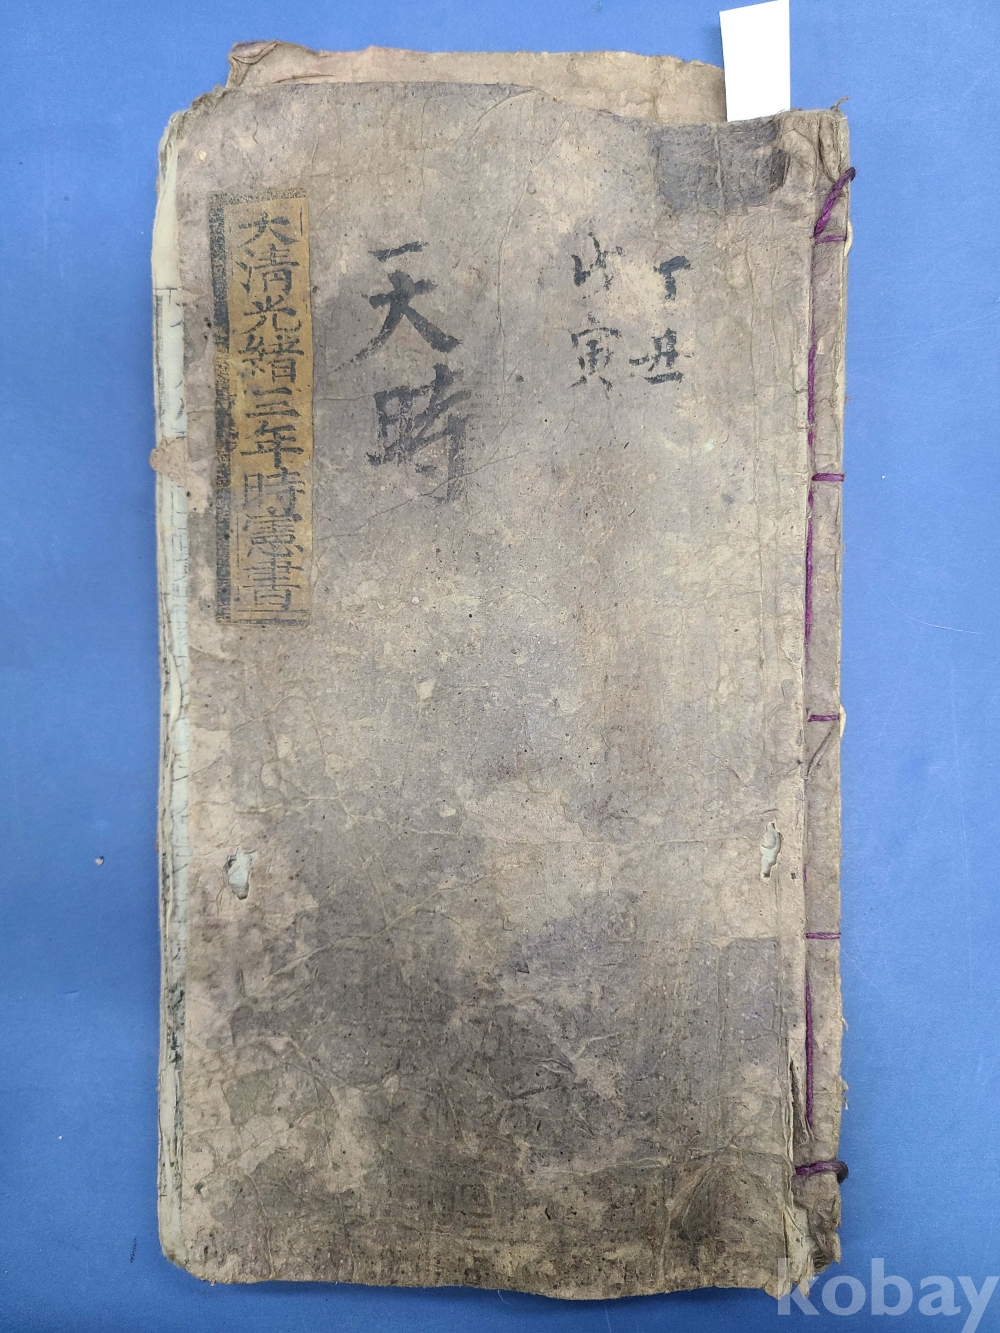 丁丑
戊寅
天時
大清光緒三年時憲書
kobay